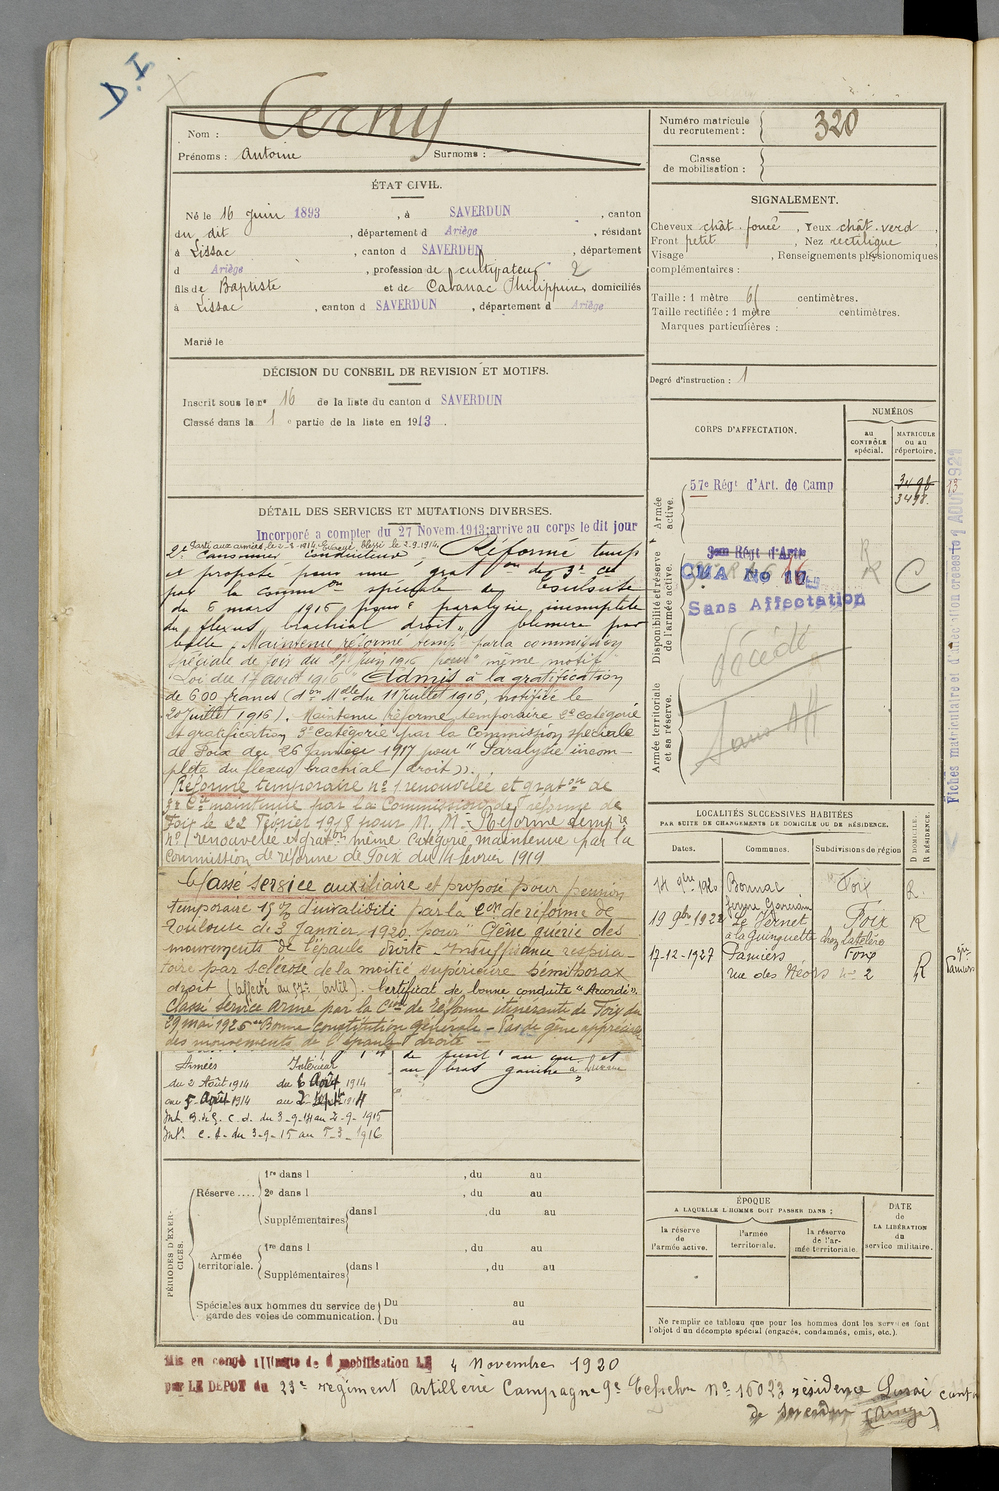 D.I
Nom : Cerny
Prénoms : Antoine Surnoms :
Numéro matricule
du recrutement : 320
Classe
de mobilisation :
ÉTAT CIVIL.
Né le 16 Juin 1893 , à SAVERDUN , canton
du dit , département d Ariège , résidant
à Lissac , canton d SAVERDUN , département
d Ariège , profession de cultivateur 2
fils de Baptiste et de Cavanac Philippine, domiciliés
à Lissac , canton d SAVERDUN , département d Ariège
Marié le
SIGNALEMENT.
Cheveux chât. foncé , Yeux chât. verd ,
Front petit , Nez rectiligne ,
Visage , Renseignements physionomiques
complémentaires :
Taille : 1 mètre 61 centimètres.
Taille rectifiée : 1 mètre centimètres.
Marques particulières :
Degré d'instruction : 1
DÉCISION DU CONSEIL DE REVISION ET MOTIFS.
Inscrit sous le n° 16 de la liste du canton d SAVERDUN
Classé dans la 1 e partie de la liste en 1913 .
CORPS D'AFFECTATION.
NUMÉROS
AU CONTRÔLE spécial.
MATRICULE OU AU répertoire.
Armée active.
57e Régt d'Art. de Camp
3498
13
Disponibilité et réserve de l'armée active.
CMA No 17
Sans Affectation
R
R
C
Décédé
Armée territoriale et sa réserve.
Sans Aff
Fiches matriculaire et d'affectation créées le AOUT 1921
DÉTAIL DES SERVICES ET MUTATIONS DIVERSES.
Incorporé à compter du 27 Novem. 1913; arrive au corps le dit jour
Parti aux armées, le 1914. Evacué, blessé le 2.9.1914.
2e Canonnier Conducteur Réformé temp
et proposé pour une grat on de 3e
par la comm on spéciale de Toulouse
du 6 mars 1916 pour paralysie incomplète
du flexus brachial droit, blessure par
balle. Maintenu réformé temp. par la commission
spéciale de Foix du 27 Juin 1916 pour même motif
Loi du 17 août 1916 Admis à la gratification
de 600 francs (d on Mlle du 11 Juillet 1916, notifiée le
20 Juillet 1916). Maintenu réformé temporaire 2e catégorie
et gratification 3e catégorie par la Commission spéciale
de Foix du 26 Janvier 1917 pour " Paralysie incom-
plète du flexus brachial (droit)".
Réforme temporaire n° 1 renouvelée et grat on de
3e maintenue par la Commission de réforme de
Foix le 22 Février 1918 pour M. M. Réforme temp re
n° 1 renouvelée et grat on même Catégorie maintenue par la
Commission de réforme de Foix du 14 février 1919
Classé service auxiliaire et proposé pour pension
temporaire 15 % d'invalidité par la C on de réforme de
Toulouse du 3 Janvier 1920. pour "Gêne des
mouvements de l'épaule droite - Insuffisance respira-
toire par sclérose de la moitié supérieure hémithorax
droit (affecté au artil). Certificat de bonne conduite "Accordé".
Classé service armé par la C on de réforme itinérante de Foix du
29 mai 1925 "Bonne constitution générale - Pas de gêne appréciable
des mouvements de l'épaule droite -
Armées Intérieur
du 2 Août 1914 du 6 Août 1914
au 5 Août 1914 au 2 Sept 1914
Int. B. de G. C. d. du 3-9-14 au 2-9-1915
Int. C. d. du 3-9-15 au 5-3-1916
de fusil au et
au bras gauche à
LOCALITÉS SUCCESSIVES HABITÉES
PAR SUITE DE CHANGEMENTS DE DOMICILE OU DE RÉSIDENCE.
Dates. Communes. Subdivisions de région
D DOMICILE.
R RÉSIDENCE.
14 9bre 1920 Bonnac Foix R
19 9bre 1922 Le Vernet Foix R
à la Guinguette chez
17-12-1927 Pamiers Foix R
rue des n° 2
PÉRIODES D'EXERCICES.
Réserve ....
1re dans l , du au
2e dans l , du au
Supplémentaires dans l , du au
Armée territoriale.
1re dans l , du au
Supplémentaires dans l , du au
Spéciales aux hommes du service de
garde des voies de communication.
Du au
Du au
ÉPOQUE
A LAQUELLE L'HOMME DOIT PASSER DANS :
la réserve de l'armée active.
l'armée territoriale.
la réserve de l'armée territoriale.
DATE de LA LIBÉRATION du service militaire.
Ne remplir ce tableau que pour les hommes dont les services font
l'objet d'un décompte spécial (engagés, condamnés, omis, etc.).
Mis en congé illimité de démobilisation LE 4 Novembre 1920
par LE DEPOT du 23e régiment Artillerie Campagne 9e Echelon N° 16023 résidence canton
de Saverdun (Ariège)